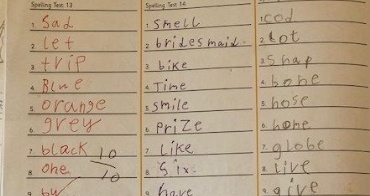 Spelling Test 13
1. Sad
2. let
3. trip
4. Blue
5. orange
6. grey
7. black
8. one
9. by
10/10
Spelling Test 14
1. smell
2. bridesmaid.
3. bike
4. Time
5. smile
6. prize
7. Like
8. Six.
9. have
1. cod
2. Lot
3. Snap
4. bone
5. nose
6. home
7. globe
8. Live
9. give